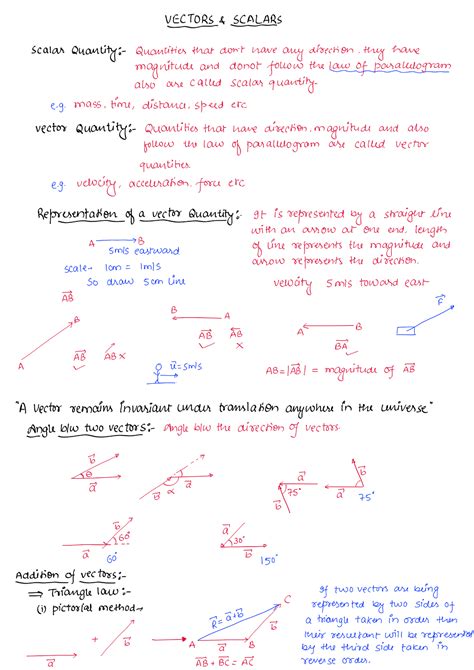 VECTORS & SCALARS
Scalar Quantity:- Quantities that don't have any direction. they have
magnitude and donot follow the law of parallelogram
also are called scalar quantity.
e.g. mass, time, distance, speed etc
vector Quantity:- Quantities that have direction, magnitude and also
follow the law of parallelogram are called vector
quantities.
e.g. velocity, acceleration, force etc
Representation of a vector Quantity:- It is represented by a straight line
with an arrow at one end. length
of line represents the magnitude and
arrow represents the direction.
A B
5m/s eastward
scale → 1cm = 1m/s
So draw 5cm line
velocity 5m/s toward east
AB
A B
AB
B A
AB BA
u = 5m/s
A B
BA
F
AB = |AB| = magnitude of AB
"A vector remains invariant under translation anywhere in the universe"
Angle b/w two vectors:- Angle b/w the direction of vectors.
b θ a
a b α
b a 75°
a b 75°
a b 60° 60°
a 30° b 150°
Addition of vectors:-
⇒ Triangle law:-
(i) pictorial method→
a + b
A B C
R = a + b
a b
AB + BC = AC
If two vectors are being
represented by two sides of
a triangle taken in order then
their resultant will be represented
by the third side taken in
reverse order.